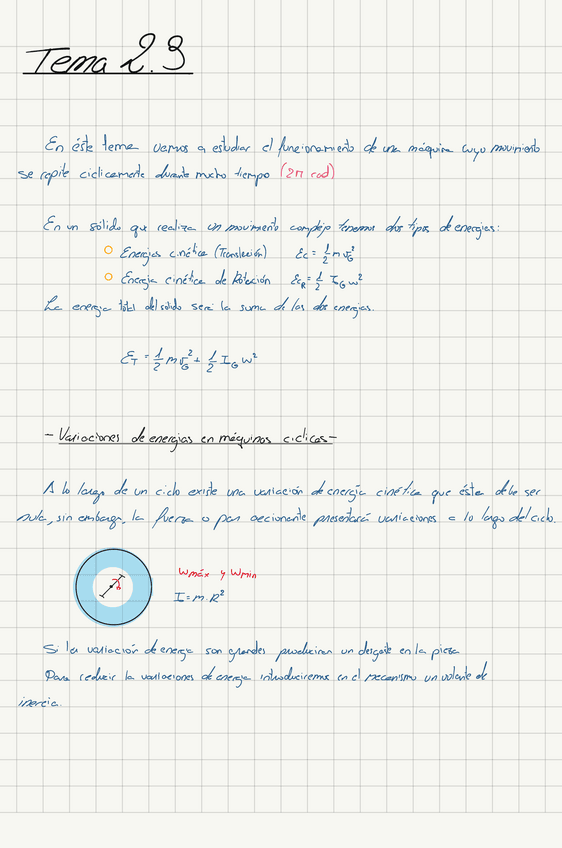 Tema 2.3
En éste tema vamos a estudiar el funcionamiento de una máquina cuyo movimiento
se repite ciclicamente durante mucho tiempo (2π rad)
En un sólido que realiza un movimiento complejo tenemos dos tipos de energias:
Energias cinética (Translación) Ec = 1/2 m v_G^2
Energia cinética de Rotación Ec_R = 1/2 I_G w^2
La energia total del sólido será la suma de las dos energias.
E_T = 1/2 m v_G^2 + 1/2 I_G w^2
- Variaciones de energias en máquinas ciclicas -
A lo largo de un ciclo existe una variación de energía cinética que ésta debe ser
nula, sin embargo, la fuerza o par accionante presentará variaciones a lo largo del ciclo.
Wmáx y Wmin
I = m·R^2
Si la variación de energia son grandes produciran un desgaste en la pieza
Para reducir la variaciones de energia introduciremos en el mecanismo un volante de
inercia.